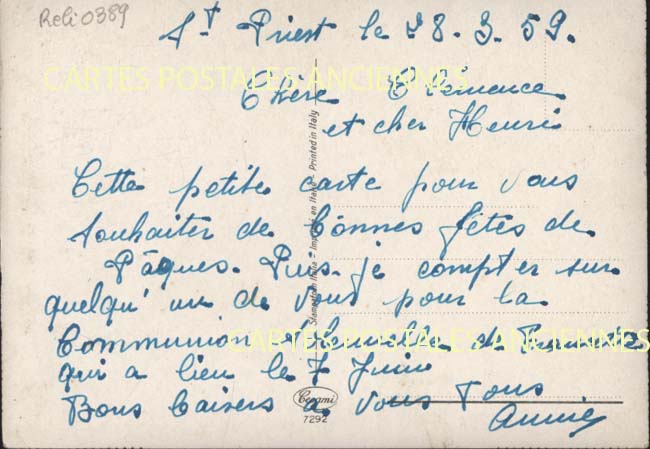 Reli0389
St Priest le 28.3.59.
CARTES POSTALES ANCIENNES
Chère Clémence
et cher Henri
Cette petite carte pour vous
souhaiter de bonnes fêtes de
Pâques. Puis-je compter sur
quelqu'un de vous pour la
Communion Solennelle de
CARTES POSTALES ANCIENNES
qui a lieu le 7 Juin
Bons baisers à vous tous
Annie
Stampato in Italia - Imprimé en Italie - Printed in Italy
Cecami
7292